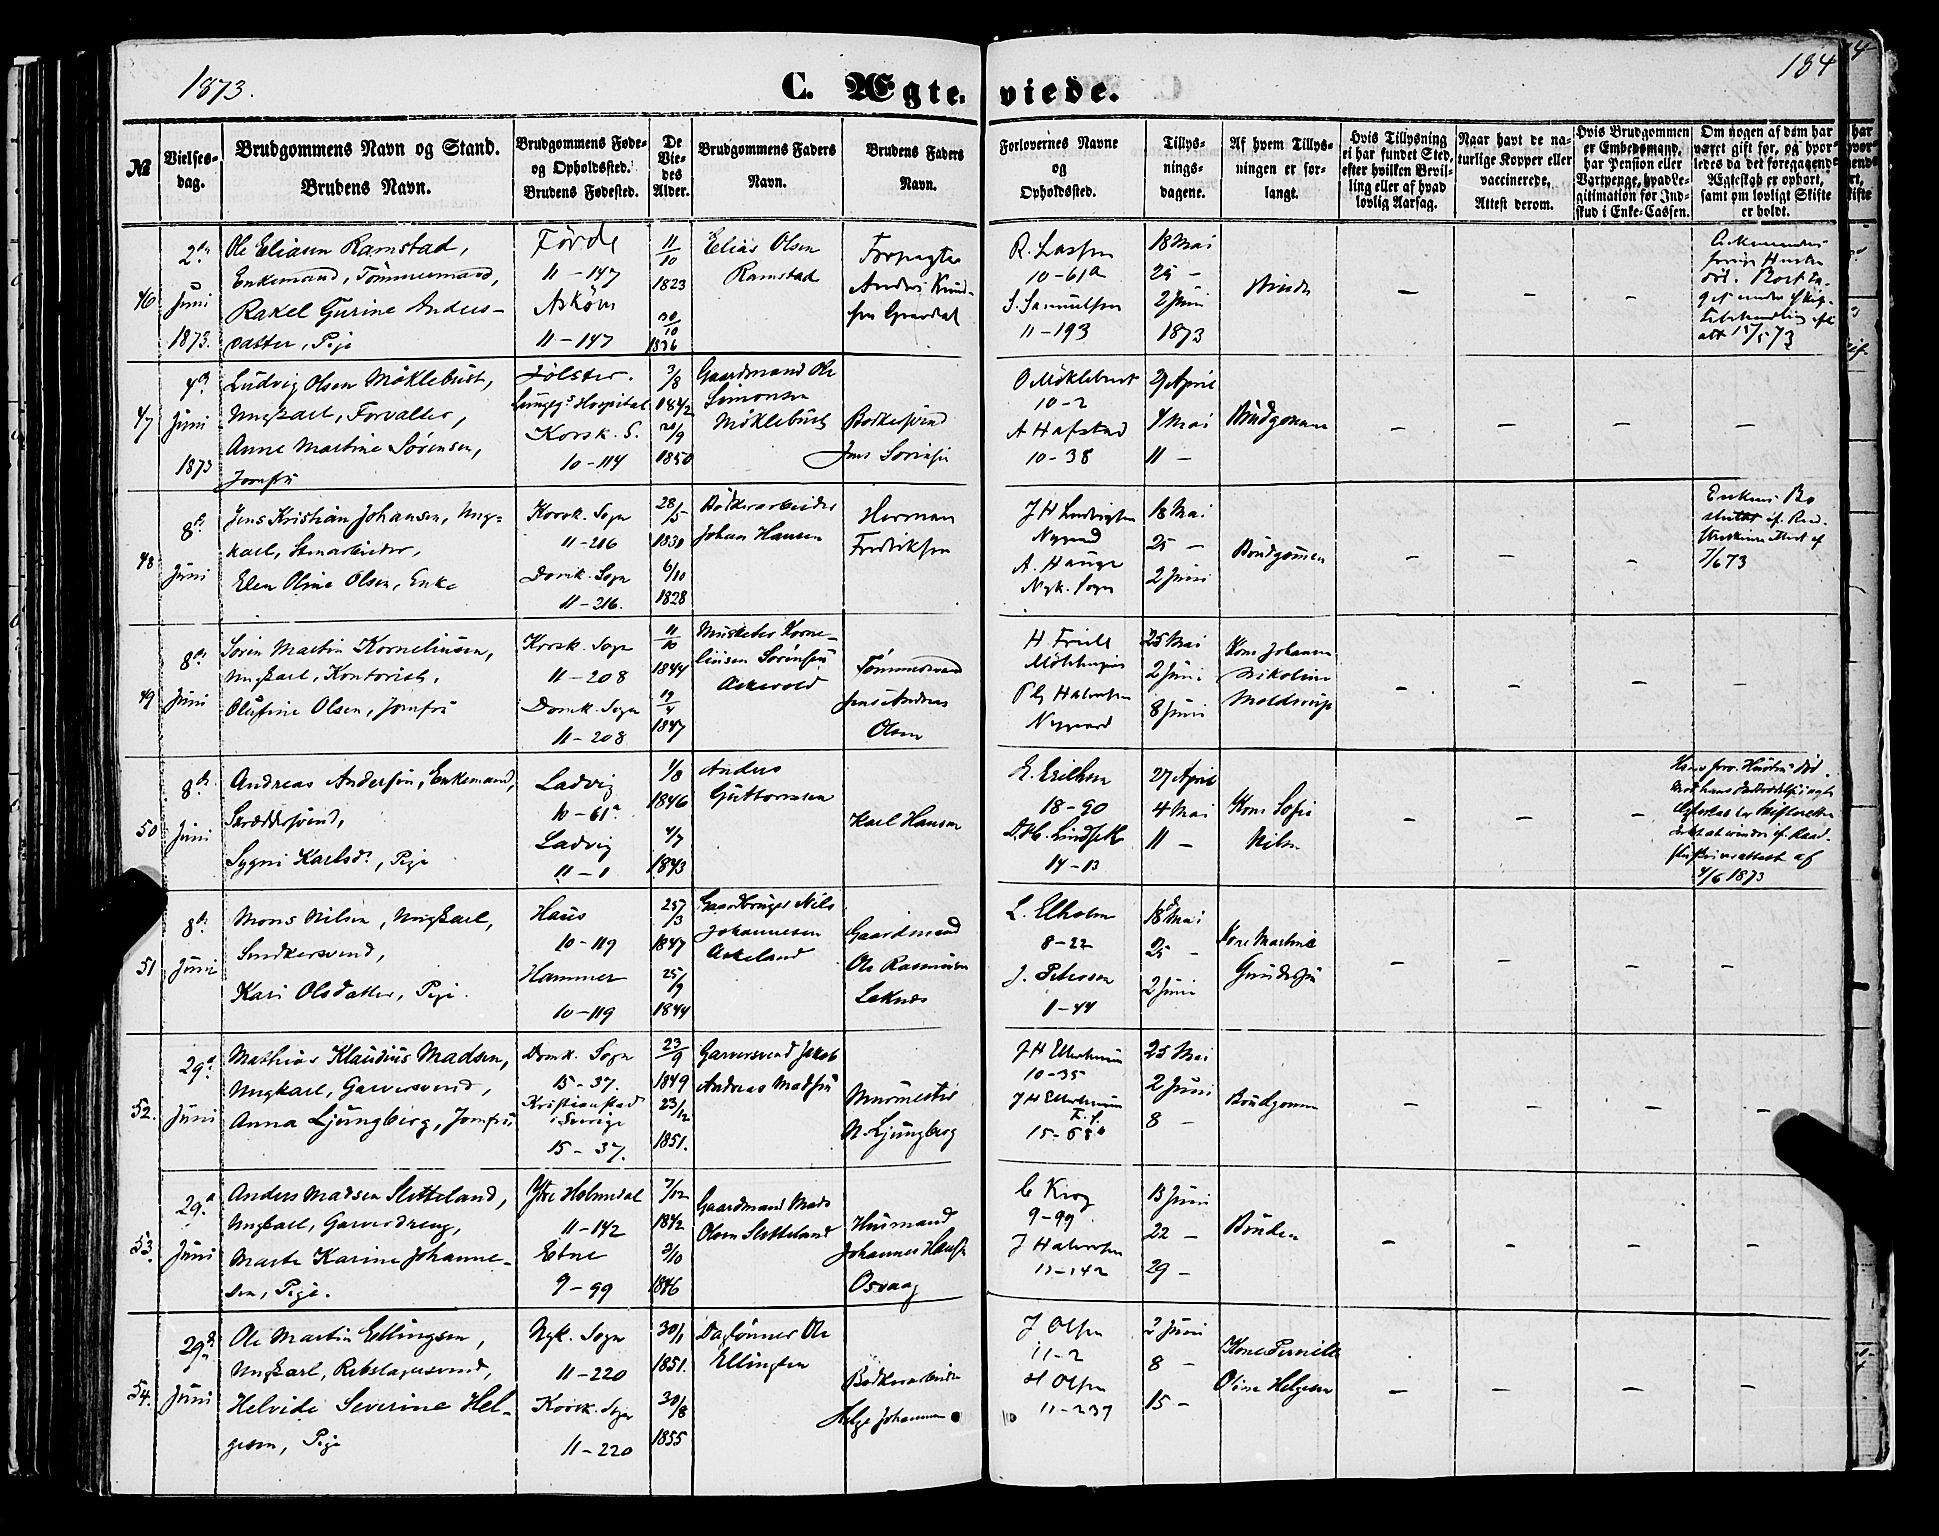 1873.
C. Ægteviede.
184
No
Vielses-
dag.
Brudgommens Navn og Stand.
Brudens Navn.
Brudgommens Føde-
og Opholdsted.
Brudens Fødested.
De
Vie-
des
Alder.
Brudgommens Faders
Navn.
Brudens Faders
Navn.
Forlovernes Navne
og
Opholdssted.
Tillys-
nings-
dagene.
Af hvem Tillys-
ningen er for-
langt.
Hvis Tillysning
ei har fundet Sted,
efter hvilken Bevil-
ling eller af hvad
lovlig Aarsag.
Naar havt de na-
turlige Kopper eller
vaccinerede,
Attest derom.
Hvis Brudgommen
er Embedsmand,
har Pension eller
Vartpenge, hvad Le-
gitimation for Ind-
skud i Enke-Cassen.
Om nogen af dem har
været gift før, og hvor-
ledes da det foregaaende
Ægteskab er ophørt,
samt om lovligt Skifte
er holdt.
46
2den
Juni
1873.
Ole Eliasen Ramstad,
Enkemand, Tømmermand,
Rakel Gurine Anders-
datter, Pige
Førde
11-147
Askøen
11-147
11/10
1823
20/10
1836
Elias Olsen
Ramstad
Forpagter
Anders Knud-
sen
R. Lassen
10-61a
S. Samuelsen
11-193
18 Mai
25 -
2 Juni
1873
Bruden
-
-
-
47
4de
Juni
1873
Ludvig Olsen Møklebust,
Ungkarl, Forvalter,
Anne Martine Sørensen,
Jomfru
Jølster.
Lungegs Hospital
Korsk. S.
10-114
3/8
1842
20/9
1850
Gaardmand Ole
Simonsen
Møklebust
Bødkersvend
Jens Sørensen
O Møklebust
10-2
A Hafstad
10-38
27 April
4 Mai
11 -
Brudgommen
-
-
-
-
48
8de
Juni
Jens Kristian Johansen, Ung-
karl, Stenarbeider,
Elen Oline Olsen, Enke
Korsk. Sogn
11-216
Domk. Sogn
11-216.
28/5
1830
6/10
1828
Bødkerarbeider
Johan Hansen
Herman
Fredriksen
J H Ludvigsen
Nygaard
A. Hauge
Nyk. Sogn
18 Mai
25 -
2 Juni
Brudgommen
-
-
-
7/6 73
49
8de
Juni
Søren Martin Korneliusen,
Ungkarl, Kontorist,
Olufine Olsen, Jomfru
Korsk. Sogn
11-208
Domk. Sogn
11-208
11/10
1844
19/4
1847
Musketer Korne-
liusen Sørensen
Askevold
Tømmermand
Jens Andreas
Olsen
H. Friele
P Halvorsen
Nygaard
25 Mai
2 Juni
8 Juni
Kone Johanne
Nikoline
Moldrup
-
-
-
-
50
8de
Juni
Andreas Andersen, Enkemand,
Skræddersvend,
Sygni Karlsd., Pige
Ladvig
10-61a
Ladvig
11-1
1/8
1846
4/7
1843
Anders
Guttormsen
Karl Hansen
E. Eriksen
18-90
14-13
27 April
4 Mai
11 -
Kone Sofie
Nilsen
-
-
-
4/6 1873
51
8de
Juni
Mons Nilsen, Ungkarl,
Snedkersvend,
Kari Olsdatter, Pige.
Haus
10-119
Hammer
10-119
25/3
1847
25/9
1844
Gaardbruger Nils
Johannesen
Askeland
Gaardmand
Ole Rasmussen
Leknæs
L. Elholm
8-22
J. Petersen
1-44
18 Mai
25 -
2 Juni
Kone Martine
-
-
-
-
52.
29de
Juni
Mathias Klaudius Madsen,
Ungkarl, Garversvend,
Anna Ljungberg, Jomfru
Domk. Sogn
15-37.
Kristianstad
i Sverige
15-37.
23/9
1849
23/12
1851.
Garversvend Jakob
Andreas Madsen
Murmester
N. Ljungberg
10-35
25 Mai
2 Juni
8 -
Brudgommen
-
-
-
-
53.
29de
Juni
Anders Madsen Sletteland,
Ungkarl, Garverdreng,
Marte Karine Johanne-
sen, Pige.
Ytre Holmedal
11-142
Etne
9-99
7/12
1842
3/10
1846
Gaardmand Mads
Olsen Sletteland
Husmand
Johannes Hansen
Osvaag
C Krog
9-99.
J Halvorsen
11-142
15 Juni
22 -
29 -
Bruden
-
-
-
-
54.
29de
Juni
Ole Martin Ellingsen,
Ungkarl, Rebslagersvend,
Helvide Severine Hel-
gesen, Pige
Nyk. Sogn
11-220
Korsk. Sogn
11-220
30/1
1851.
30/8
1855
Daglønner Ole
Ellingsen
Bødkerarbeider
Helge Johannesen
J Olsen
11-2
H Olsen
11-237
2 Juni
8 -
15 -
Kone Pernille
Oline Helgesen
-
-
-
-